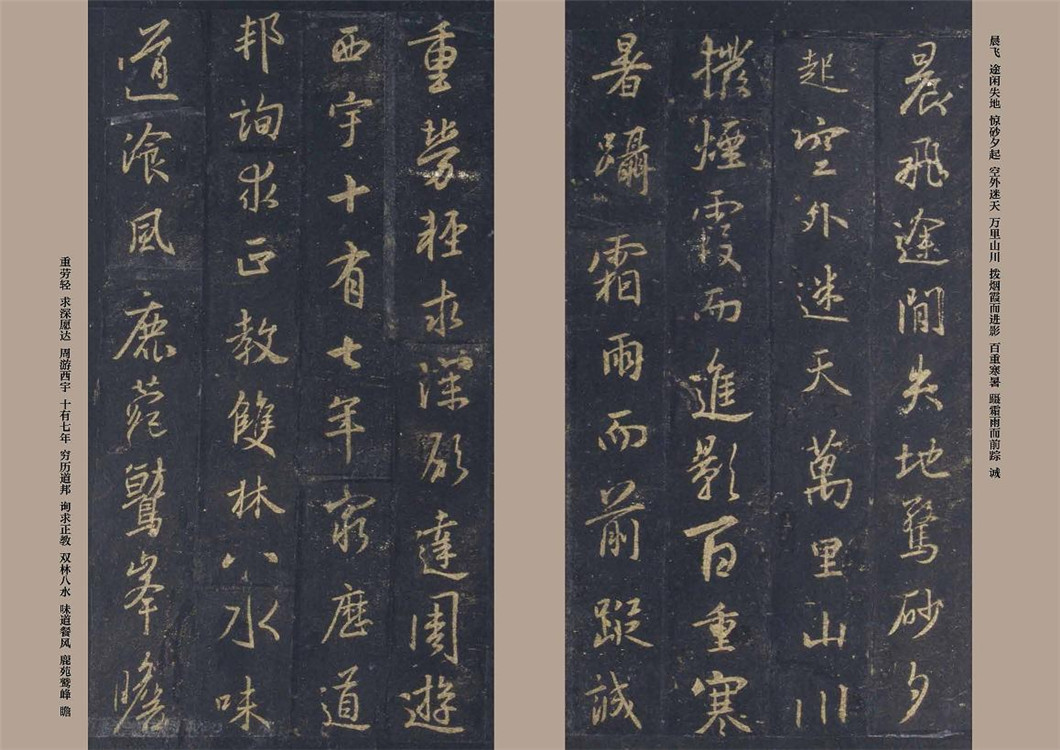 晨飞 途闲失地 惊砂夕起 空外迷天 万里山川 拨烟霞而进影 百重寒暑 蹑霜雨而前踪 诚
晨飛途間失地驚砂夕
起空外迷天萬里山川
撥煙霞而進影百重寒
暑躡霜雨而前蹤誠
重勞輕求深願達周遊
西宇十有七年窮歷道
邦詢求正教雙林八水味
道飡風鹿菀鷲峯瞻
重劳轻 求深愿达 周游西宇 十有七年 穷历道邦 询求正教 双林八水 味道餐风 鹿苑鹫峰 瞻